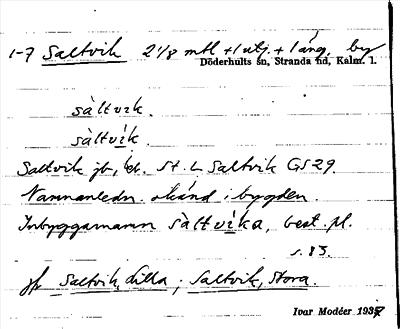 1-7 Saltvik 2 1/8 mtl + 1 utj. + 1 äng, by
Döderhults sn, Stranda hd, Kalm. l.
sàltvɩk.
sàltvi̇k.
Saltvik jb, St. L Saltvik GS 29.
Namnanledn. okänd i bygden.
Inbyggarnamn sàltvika, best. pl.
s. 83.
jfr Saltvik, Lilla; Saltvik, Stora.
Ivar Modéer 1937